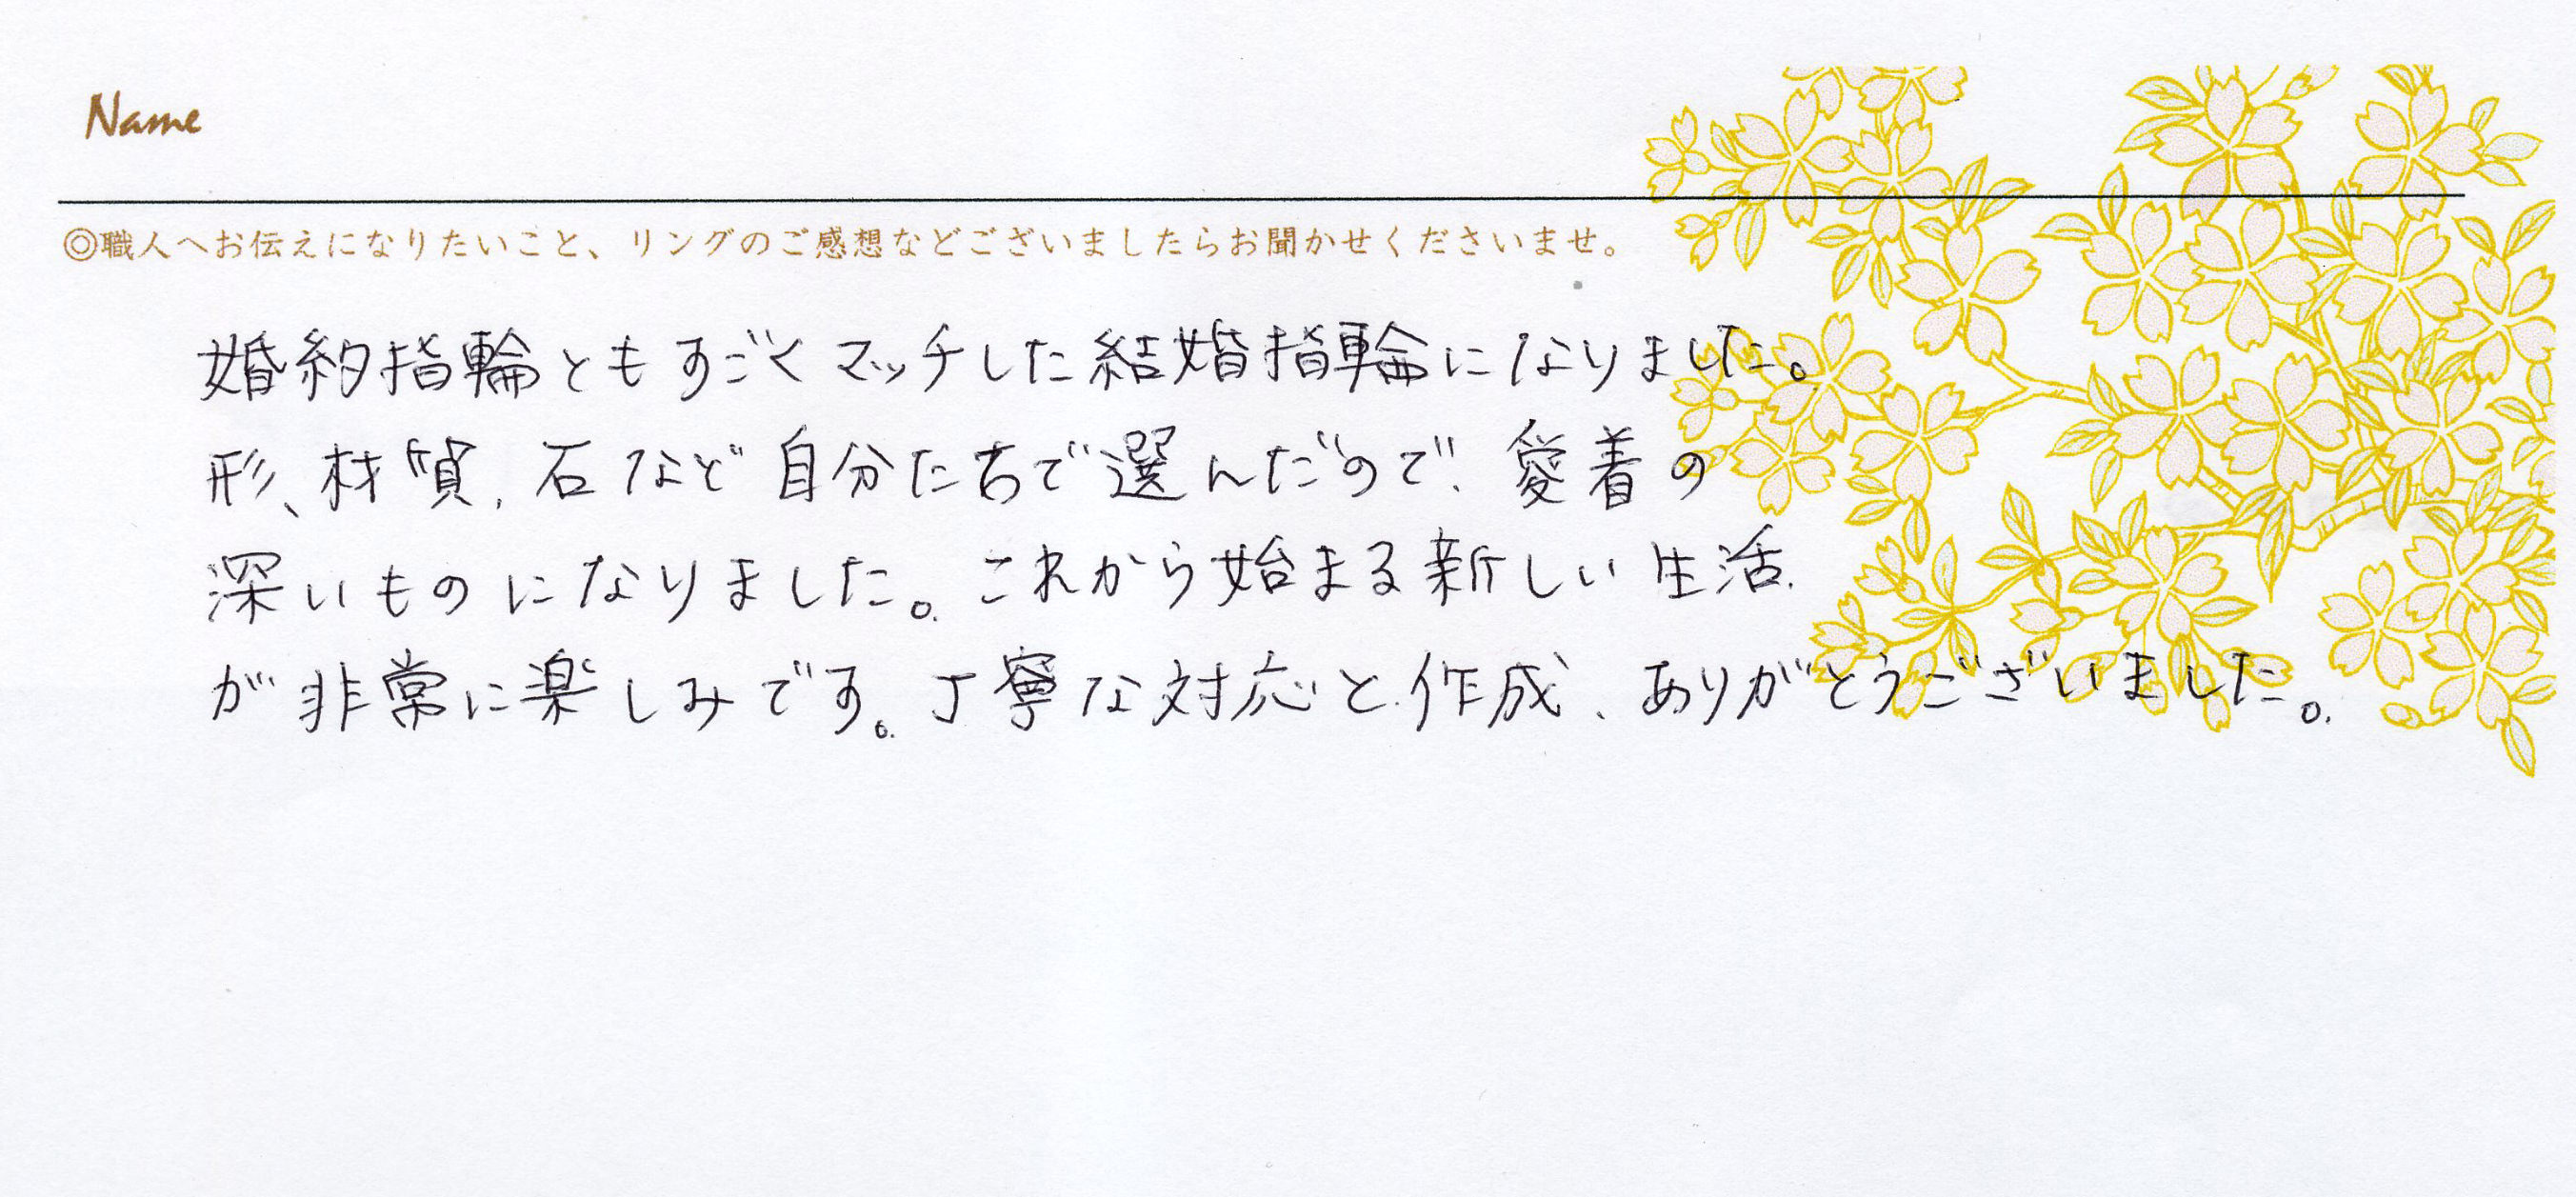 Name
◎職人へお伝えになりたいこと、リングのご感想などございましたらお聞かせくださいませ。
婚約指輪ともすごくマッチした結婚指輪になりました。
形、材質、石など自分たちで選んだので、愛着の
深いものになりました。これから始まる新しい生活
が非常に楽しみです。丁寧な対応と作成、ありがとうございました。